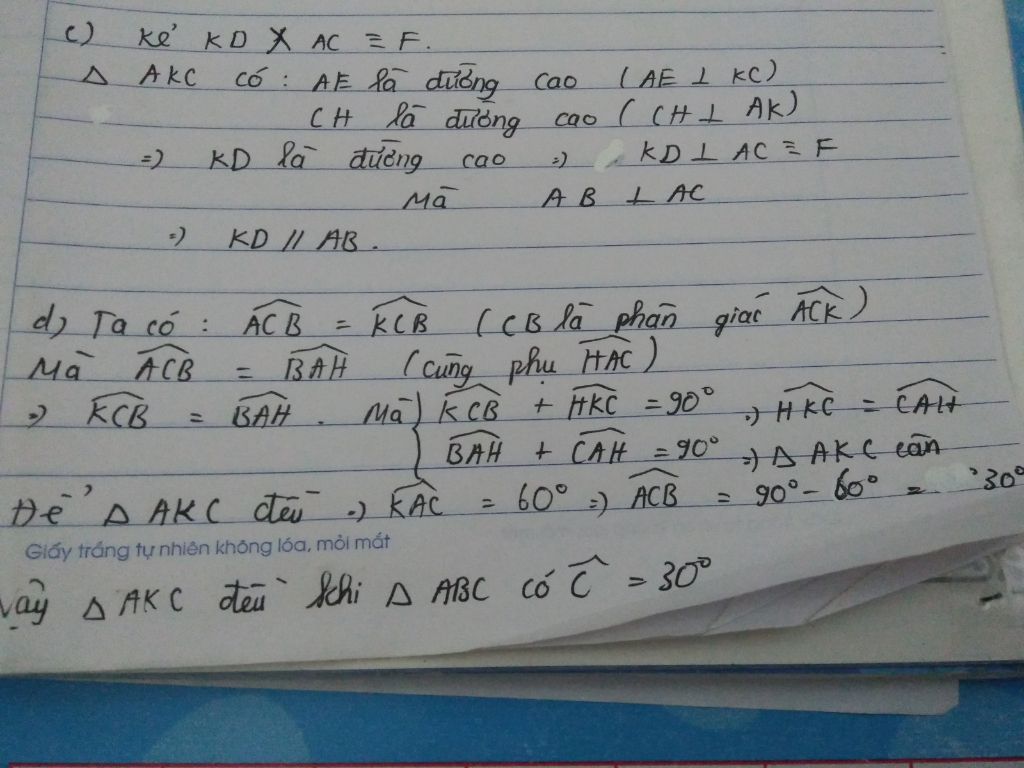 c) Kẻ KD X AC ≡ F.
Δ AKC có: AE là đường cao (AE ⊥ KC)
CH là đường cao (CH ⊥ AK)
=) KD là đường cao =) KD ⊥ AC ≡ F
Mà AB ⊥ AC
=) KD // AB.
d) Ta có: \widehat{ACB} = \widehat{KCB} (CB là phân giác \widehat{ACK})
Mà \widehat{ACB} = \widehat{BAH} (cùng phụ \widehat{HAC})
=) \widehat{KCB} = \widehat{BAH}. Mà { \widehat{KCB} + \widehat{HKC} = 90° =) \widehat{HKC} = \widehat{CAH}
\widehat{BAH} + \widehat{CAH} = 90° =) Δ AKC cân
Để Δ AKC đều =) \widehat{KAC} = 60° =) \widehat{ACB} = 90° - 60° = 30°
Giấy trắng tự nhiên không lóa, mỏi mắt
Vậy Δ AKC đều khi Δ ABC có \widehat{C} = 30°